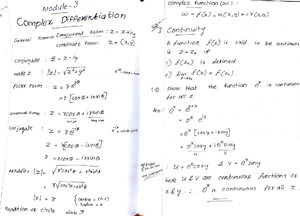 Module-3
Complex Differentiation
General Component form : z = x+iy
Coordinate form : z = (x,y)
Conjugate : z̄ = x-iy
mode z : |z| = √x²+y²
Polar Form : z = re^iθ
= r[cosθ+isinθ]
Form : z = rcosθ+irsinθ
Conjugate : z̄ = re^-iθ
z̄ = r[cosθ-isinθ]
z̄ = rcosθ-irsinθ
Modulus |z| =
|z| = r
Equation of circle
Complex function (w) :
w = f(z) = u(x,y)+iv(x,y)
Continuity
A function f(z) is said to be continuous
if z = z₀ if
1) f(z₀) is defined
2) lim f(z) = f(z₀)
Show that the function e^z is continuous
for all z
e^z = e^x+iy
= e^x e^iy
= e^x [cosy+isiny]
= e^x cosy + ie^x siny
u = e^x cosy & v = e^x siny
here u & v are continuous functions of
x & y ∴ e^z is continuous for all z.